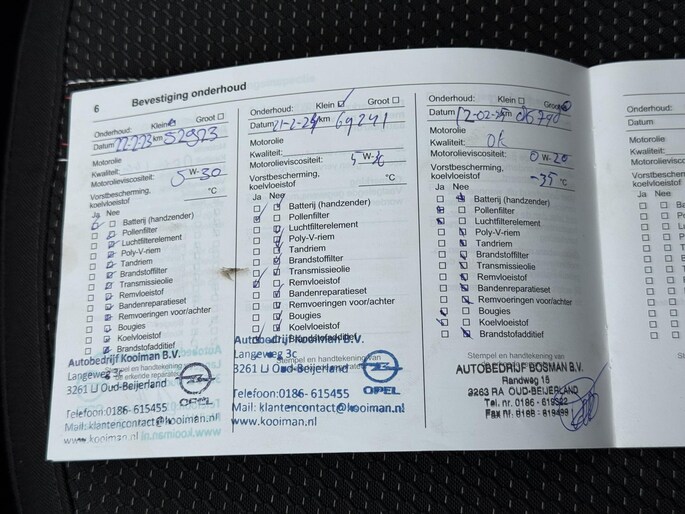 6 Bevestiging onderhoud
Onderhoud: Klein Groot
Datum 22-2-23 km 52923
Motorolie
Kwaliteit:
Motorolieviscositeit: 5 W-30
Vorstbescherming,
koelvloeistof °C
Ja Nee
Batterij (handzender)
Pollenfilter
Luchtfilterelement
Poly-V-riem
Tandriem
Brandstoffilter
Transmissieolie
Remvloeistof
Bandenreparatieset
Remvoeringen voor/achter
Bougies
Koelvloeistof
Brandstofadditief
Autobedrijf Kooiman B.V.
Langeweg 3c
3261 LJ Oud-Beijerland
OPEL
Telefoon:0186- 615455
Mail: klantencontact@kooiman.nl
www.kooiman.nl
Onderhoud: Klein Groot
Datum 21-2-24 km 69241
Motorolie
Kwaliteit:
Motorolieviscositeit: 5 W-30
Vorstbescherming,
koelvloeistof °C
Ja Nee
Batterij (handzender)
Pollenfilter
Luchtfilterelement
Poly-V-riem
Tandriem
Brandstoffilter
Transmissieolie
Remvloeistof
Bandenreparatieset
Remvoeringen voor/achter
Bougies
Koelvloeistof
Brandstofadditief
Autobedrijf Kooiman B.V.
Langeweg 3c
Stempel en handtekening van
3261 LJ Oud-Beijerland
OPEL
Telefoon:0186- 615455
Mail: klantencontact@kooiman.nl
www.kooiman.nl
Onderhoud: Klein Groot
Datum 12-02-25 km
Motorolie
Kwaliteit: OK
Motorolieviscositeit: 0 W-20
Vorstbescherming,
koelvloeistof -35 °C
Ja Nee
Batterij (handzender)
Pollenfilter
Luchtfilterelement
Poly-V-riem
Tandriem
Brandstoffilter
Transmissieolie
Remvloeistof
Bandenreparatieset
Remvoeringen voor/achter
Bougies
Koelvloeistof
Brandstofadditief
Stempel en handtekening van
AUTOBEDRIJF BOSMAN B.V.
Randweg 15
3263 RA OUD-BEIJERLAND
Tel. nr. 0186 -
Fax nr. 0186 -
Onderhoud:
Datum
Motorolie
Kwaliteit:
Motorolieviscositeit:
Vorstbescherming,
koelvloeistof
Ja Nee